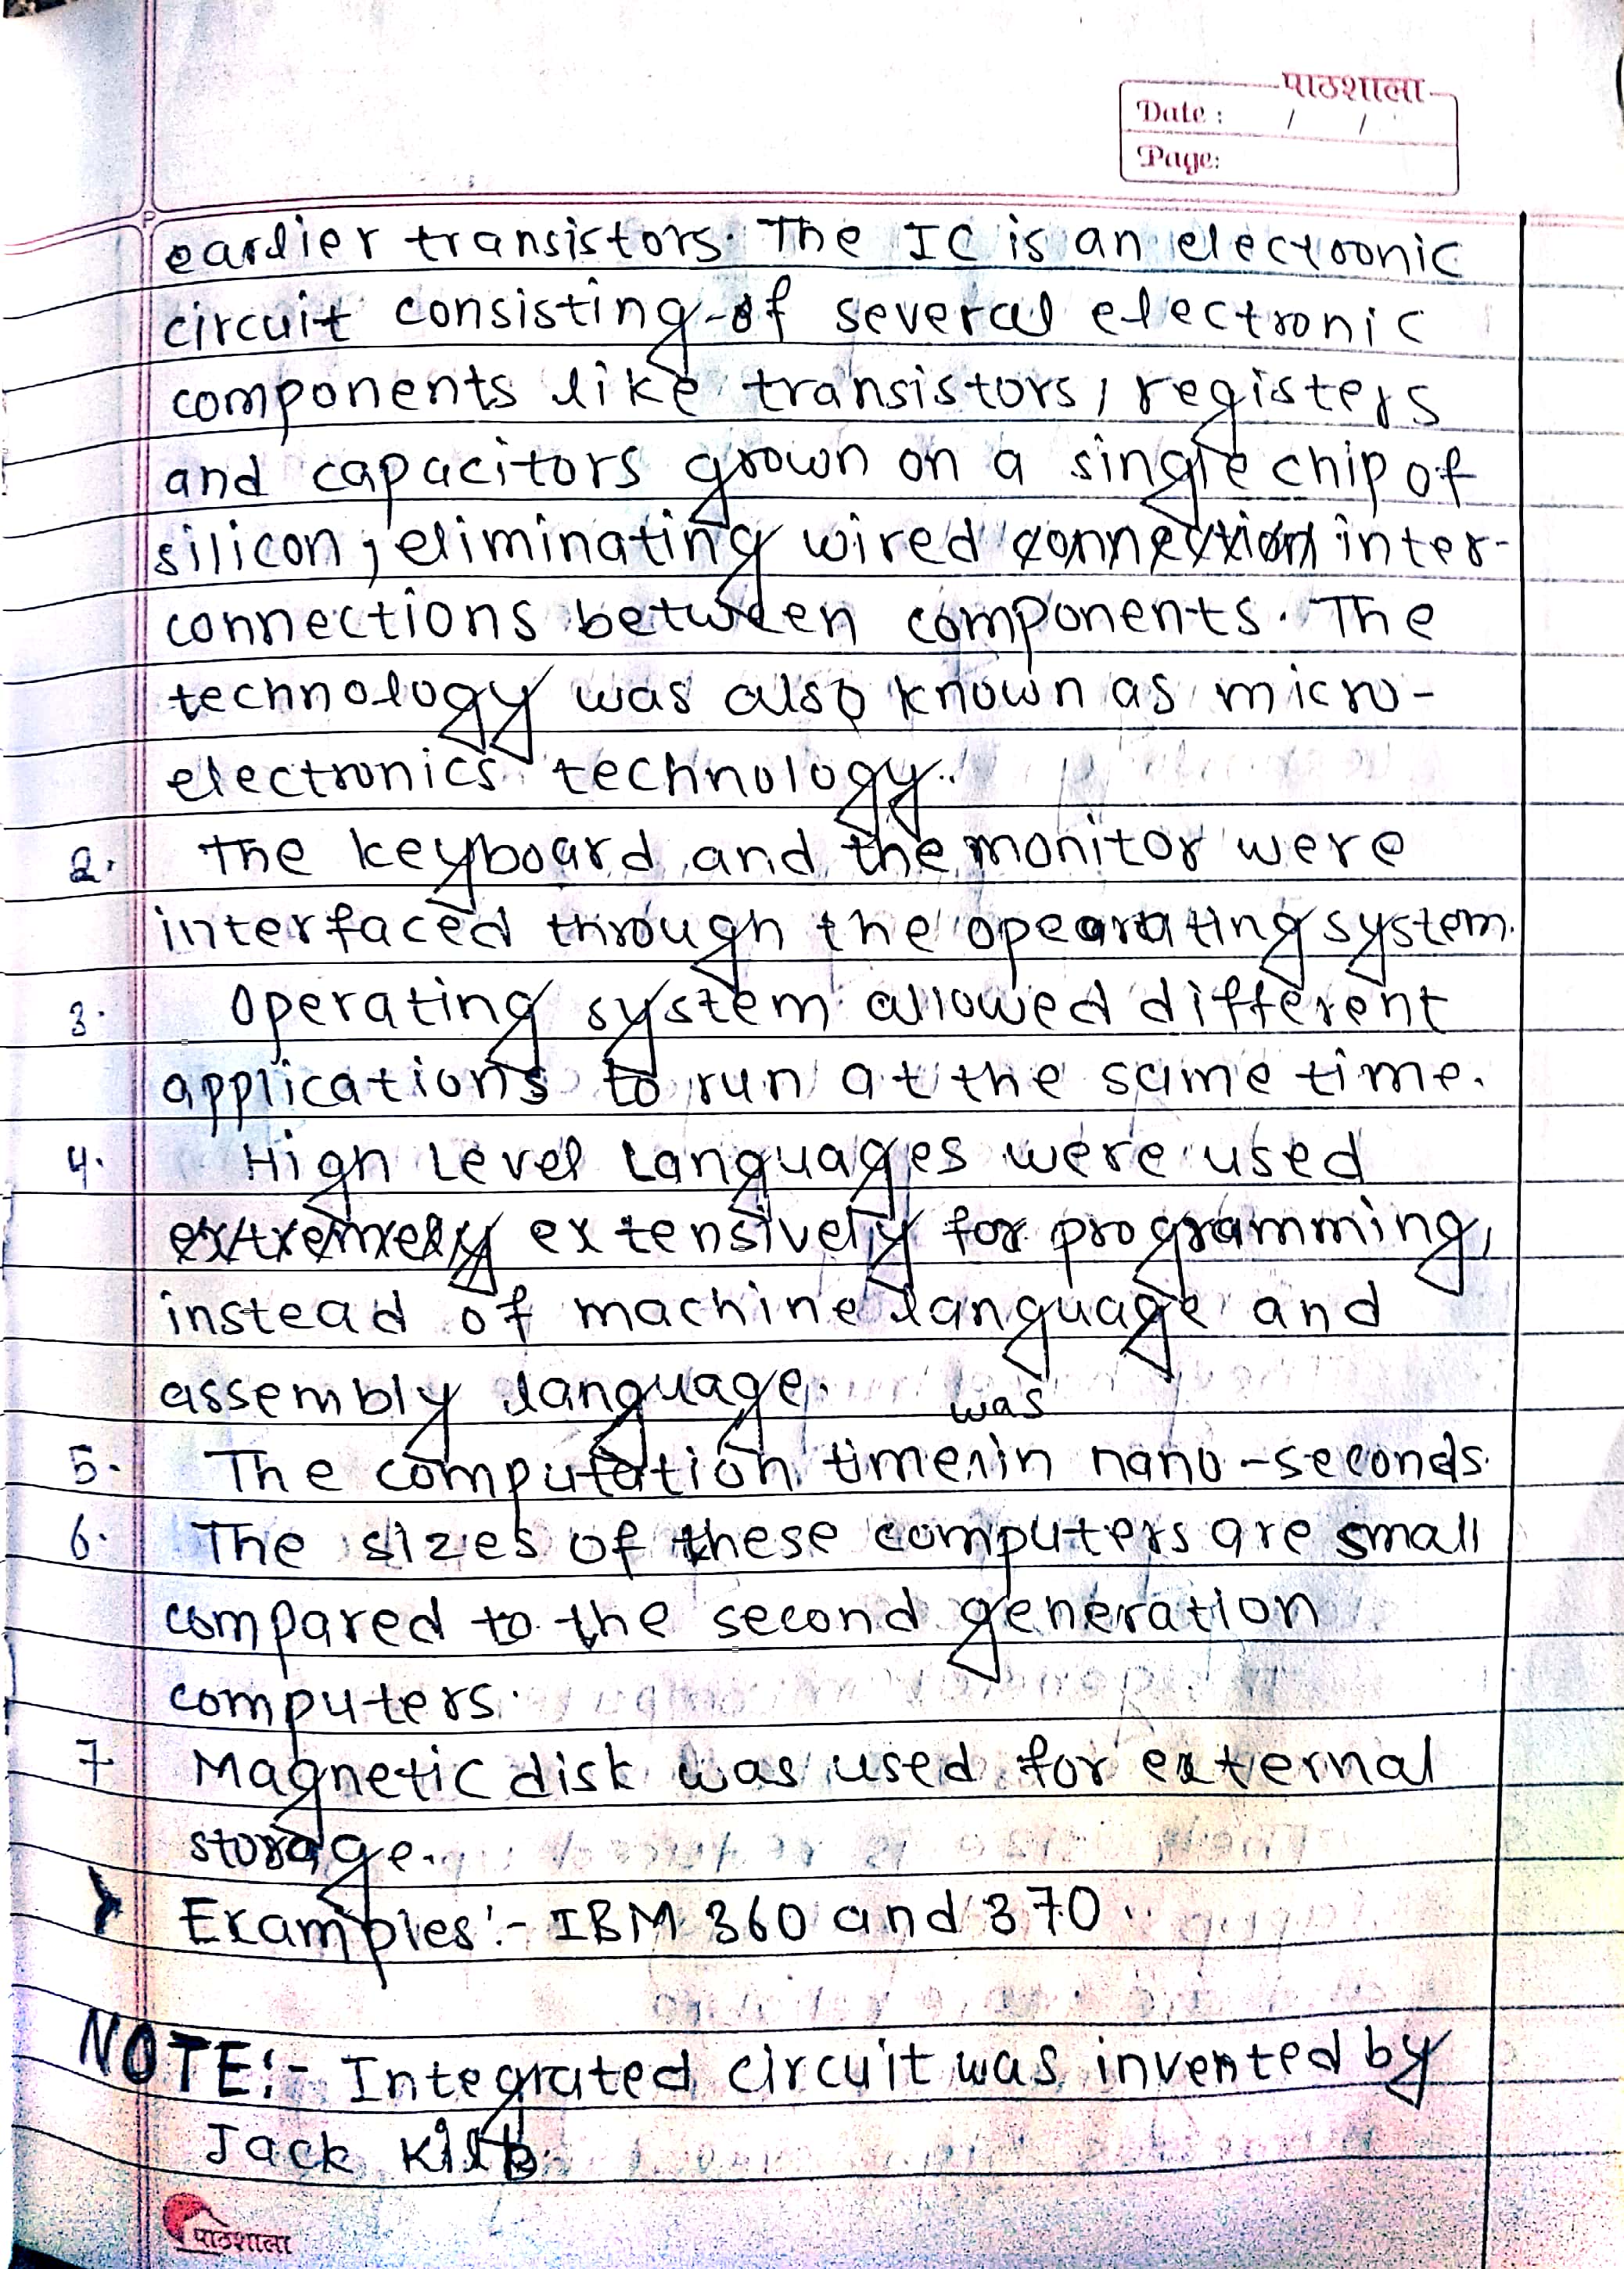 पाठशाला
Date : / /
Page:
earlier transistors. The IC is an electronic
circuit consisting of several electronic
components like transistors, registers
and capacitors grown on a single chip of
silicon, eliminating wired connection inter-
connections between components. The
technology was also known as micro-
electronics technology.
2. The keyboard and the monitor were
interfaced through the opearating system.
3. Operating system allowed different
applications to run at the same time.
4. High Level Languages were used
extremely extensively for programming,
instead of machine language and
assembly language.
was
5. The computation time in nano-seconds.
6. The sizes of these computers are small
compared to the second generation
computers.
7 Magnetic disk was used for external
storage.
Examples:- IBM 360 and 370.
NOTE:- Integrated circuit was invented by
Jack
पाठशाला